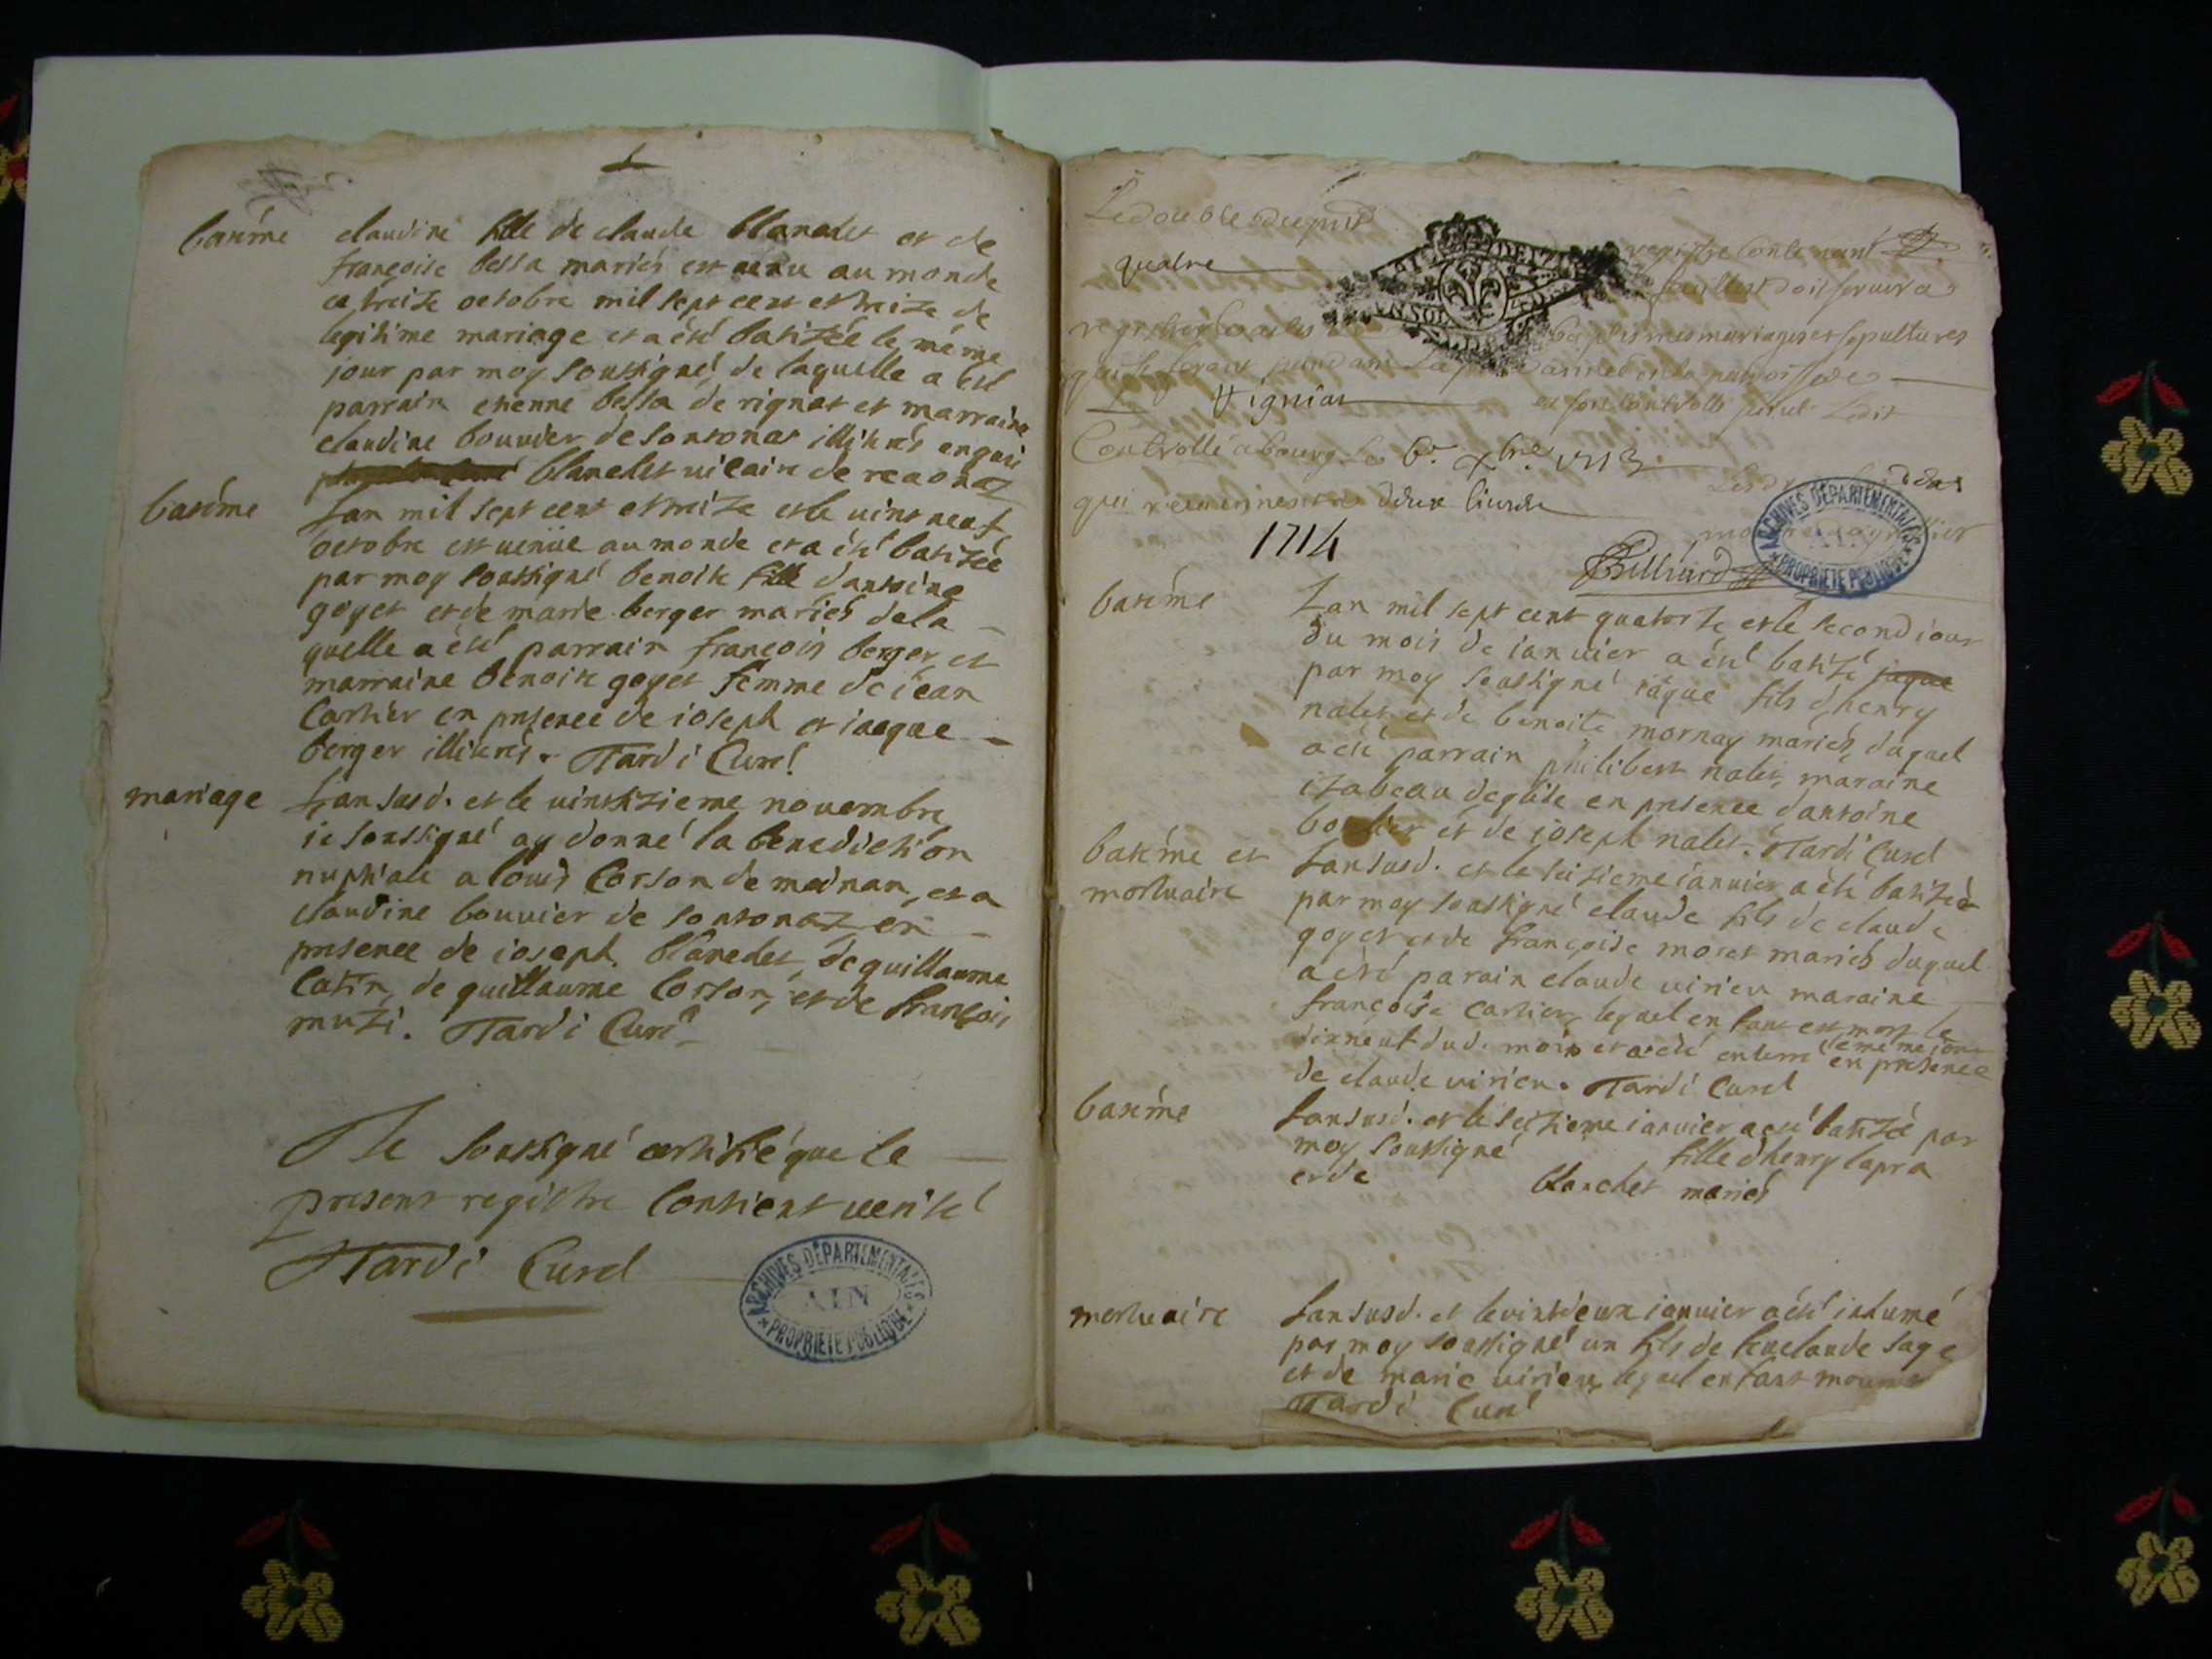 batéme
claudine fille de claude blanedet et de
françoise bessa mariés est venu au monde
ce treize octobre mil sept cent et treize de
legitime mariage et a été batizée le méme
jour par moy soussigné de laquelle a été
parrain etienne bessa de rignat et marraine
claudine bouvier de sontonas illitérés
blanedet vicaire de
batéme
Lan mil sept cent et treize et le vint neuf
octobre est venüe au monde et a été batizée
par moy soussigné benoite fille d'antoine
goyet et de marie berger mariés de la
quelle a été parrain françois berger et
marraine benoite goyet femme de iean
Cartier en presence de ioseph et iacque
berger illitérés. Tardi Curé
mariage
Lan susd. et le vintsizieme novembre
ie soussigné ay donné la benediction
nuptiale a louis Corson de meinan, et a
claudine bouvier de sontonaz en
presence de ioseph blanedet, de guillaume
Catin, de guillaume Corson, et de françois
muzi. Tardi Curé
Ie soussigné certifie que le
present registre contient verité
Tardi Curé
ARCHIVES DÉPARTEMENTALES
AIN
PROPRIÉTÉ PUBLIQUE
Le double du pnt
quatre
registre contenant
feuillet doit servir a
registrer les baptismes mariages et sepultures
qui se feront pendant la pnte année en la parroisse de
Rigniat
et fors controlle
Controllé a bourg le 6e xbre 1713
qui deux livres
1714
ARCHIVES DÉPARTEMENTALES
AIN
PROPRIÉTÉ PUBLIQUE
batéme
Lan mil sept cent quatorze et le second iour
du mois de ianvier a été batizé jaque
par moy soussigné iaque fils d'henry
nalet et de benoite mornay mariés, duquel
a été parrain philibert nalet, maraine
izabeau deglise en presence d'antoine
et de ioseph nalet. Tardi Curé
batéme et
mortuaire
Lan susd. et le seizieme ianvier a été batizé
par moy soussigné claude fils de claude
goyet et de françoise moret mariés duquel
a été parain claude virieu maraine
françoise cartier, lequel enfant est mort le
dixneuf dud. mois et a été enterré le méme iour
en presence
de claude virieu. Tardi Curé
batéme
Lan susd. et le seizieme ianvier a été batizée par
moy soussigné fille d'henry lapra
et de blanchet mariés
mortuaire
Lan susd. et le vintdeux ianvier a été inhumé
par moy soussigné un fils de feu claude sage
et de marie virieu, lequel enfant mourut
Tardi Curé